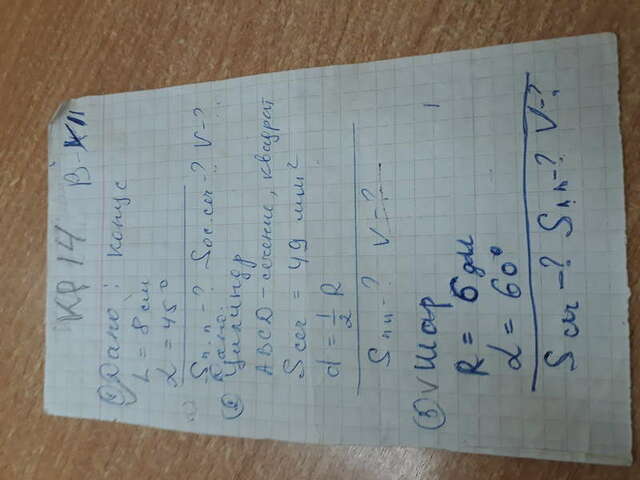 КР 14 В-
① Дано: конус
L = 8 см
α = 45°
Sп.п-? Sос.сеч-? V-?
② Дано:
Цилиндр
ABCD-сечение, квадрат
Sсеч = 49 мм²
d = 1/2 R
Sпп-? V-?
③ Шар
R = 6 дм
α = 60°
Sсеч-? Sп.п-? V-?